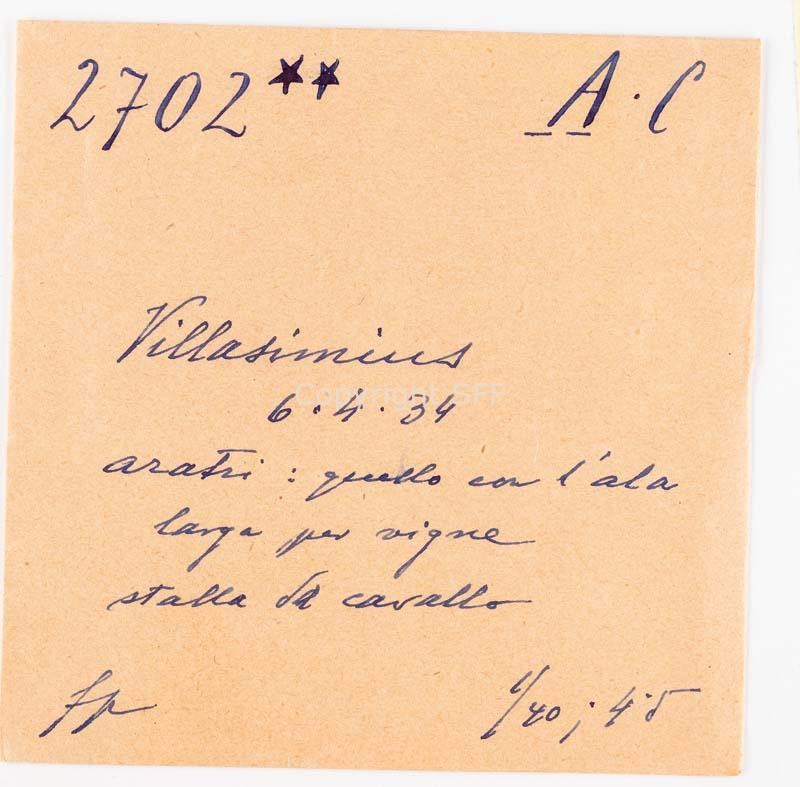 2702** A. C
Villasimius
Copyright SFF
6.4.34
aratri : quello con l'ala
larga per vigne
stalla da cavallo
fp 1/40 ; 4.5